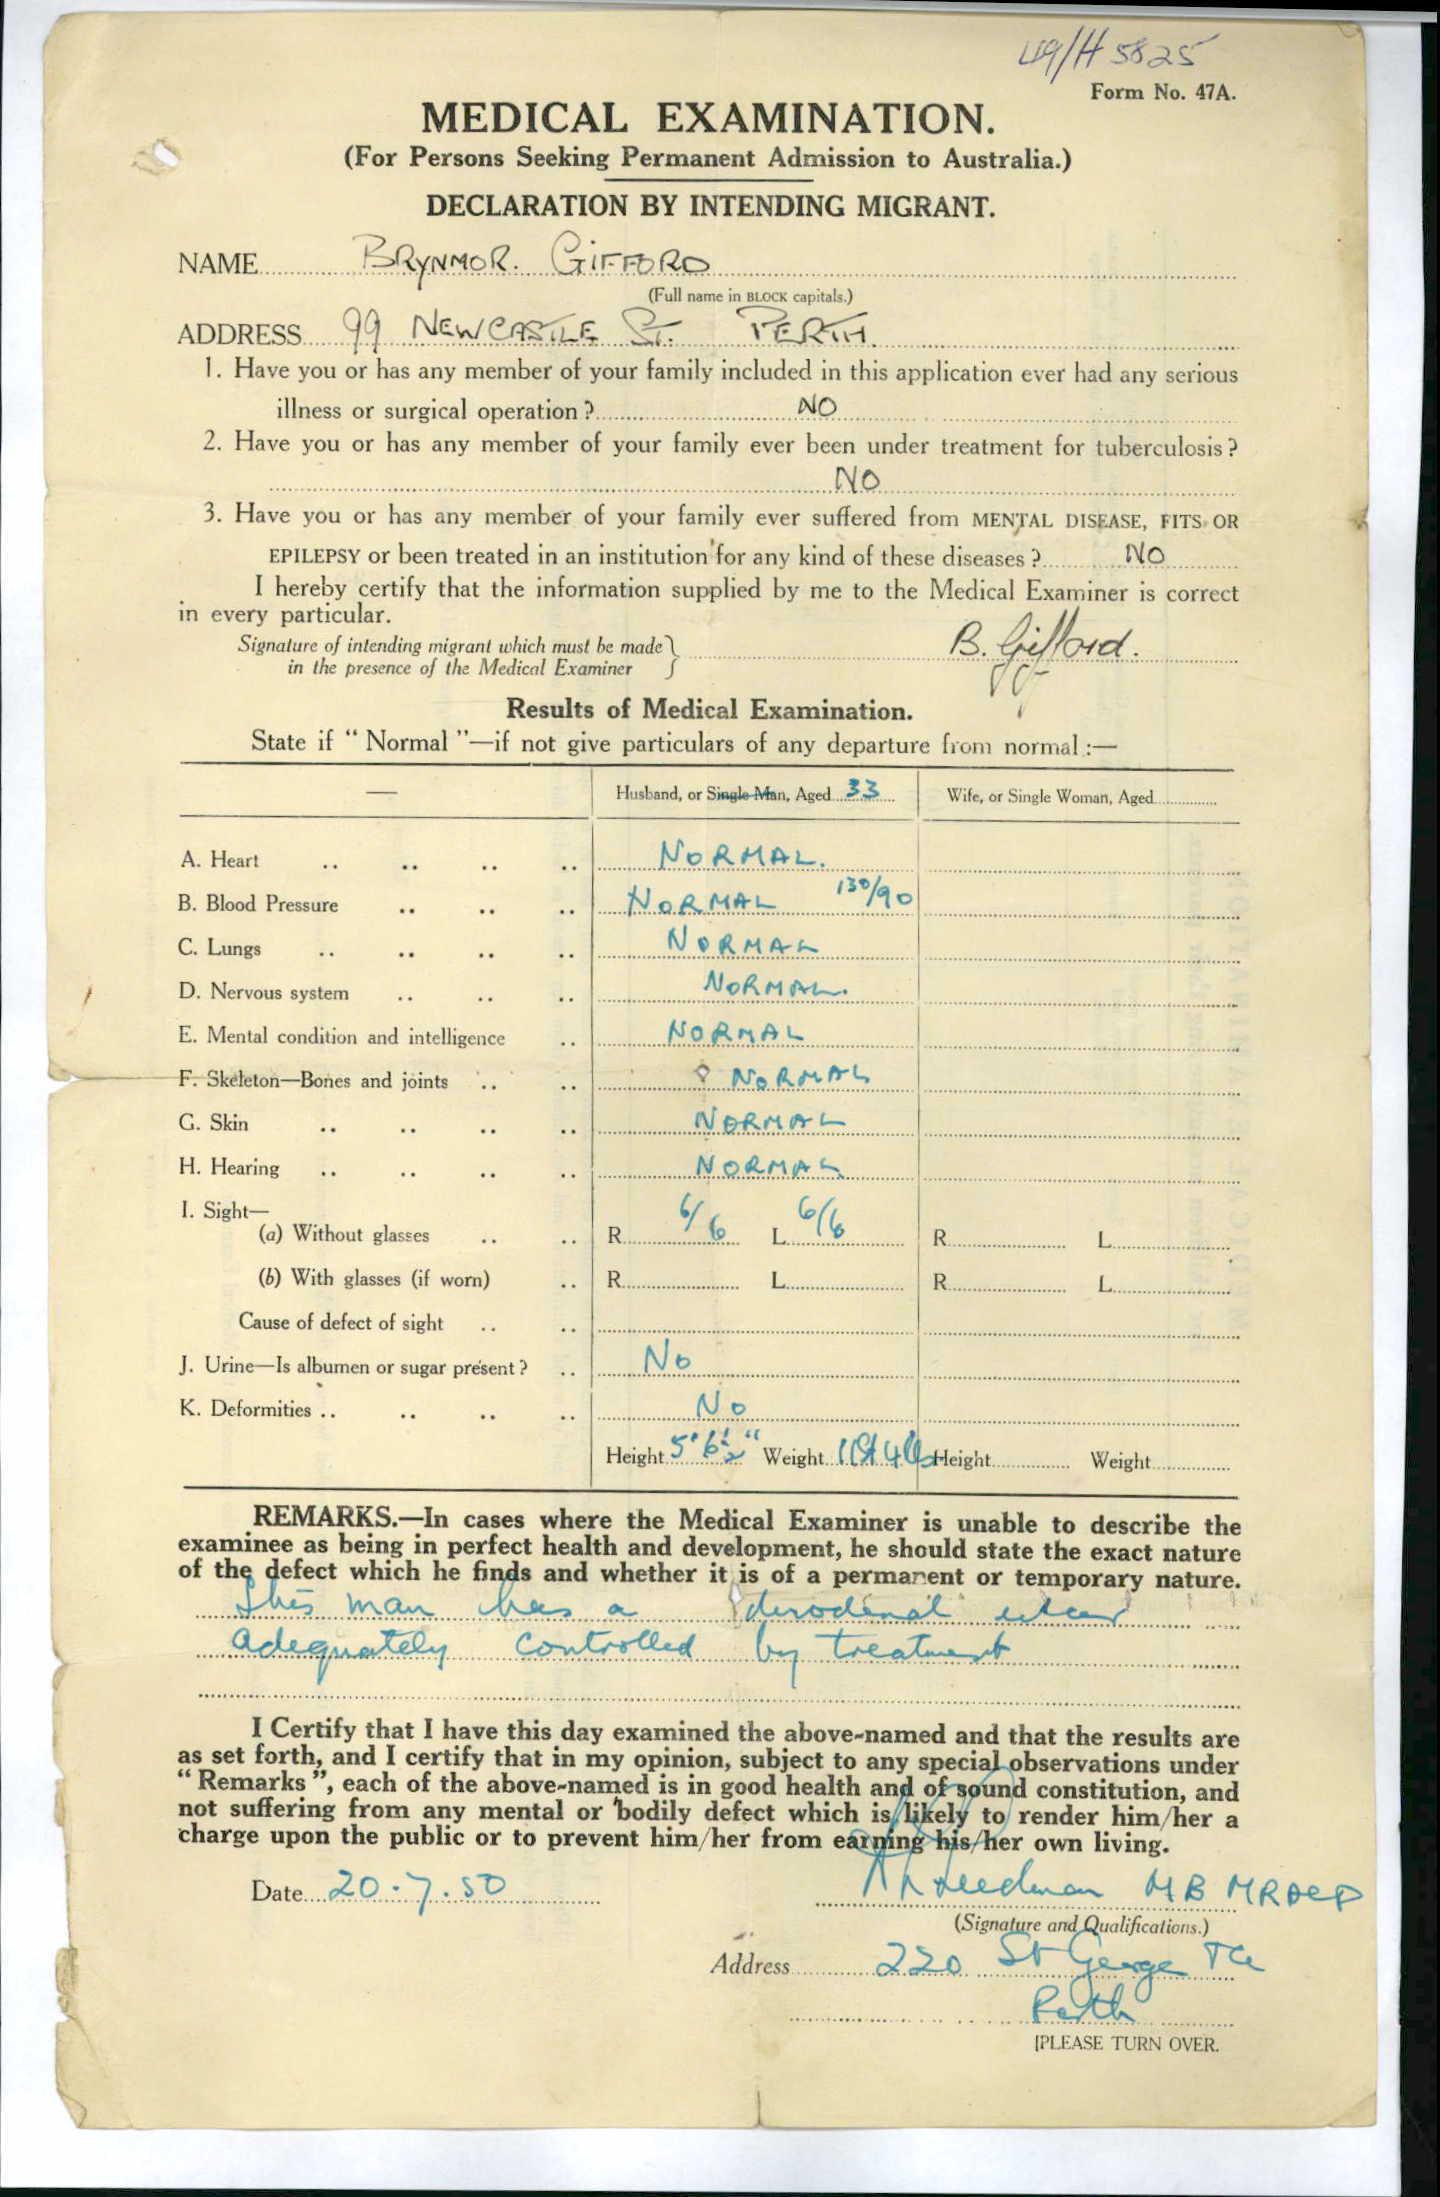 49/H 5825
Form No. 47A.
MEDICAL EXAMINATION.
(For Persons Seeking Permanent Admission to Australia.)
DECLARATION BY INTENDING MIGRANT.
NAME BRYNMOR. GIFFORD
(Full name in BLOCK capitals.)
ADDRESS 99 NEWCASTLE ST. PERTH.
1. Have you or has any member of your family included in this application ever had any serious
illness or surgical operation? NO
2. Have you or has any member of your family ever been under treatment for tuberculosis?
NO
3. Have you or has any member of your family ever suffered from MENTAL DISEASE, FITS OR
EPILEPSY or been treated in an institution for any kind of these diseases? NO
I hereby certify that the information supplied by me to the Medical Examiner is correct
in every particular.
Signature of intending migrant which must be made
in the presence of the Medical Examiner } B. Gifford.
Results of Medical Examination.
State if "Normal"—if not give particulars of any departure from normal:—
— Husband, or Single Man, Aged 33 Wife, or Single Woman, Aged
A. Heart NORMAL.
B. Blood Pressure NORMAL 130/90
C. Lungs NORMAL
D. Nervous system NORMAL.
E. Mental condition and intelligence NORMAL
F. Skeleton—Bones and joints NORMAL
G. Skin NORMAL
H. Hearing NORMAL
I. Sight—
(a) Without glasses R 6/6 L 6/6 R L
(b) With glasses (if worn) R L R L
Cause of defect of sight
J. Urine—Is albumen or sugar present? No
K. Deformities No
Height 5' 6½" Weight 11st 4lbs Height Weight
REMARKS.—In cases where the Medical Examiner is unable to describe the
examinee as being in perfect health and development, he should state the exact nature
of the defect which he finds and whether it is of a permanent or temporary nature.
This man has a duodenal ulcer
adequately controlled by treatment
I Certify that I have this day examined the above-named and that the results are
as set forth, and I certify that in my opinion, subject to any special observations under
"Remarks", each of the above-named is in good health and of sound constitution, and
not suffering from any mental or bodily defect which is likely to render him/her a
charge upon the public or to prevent him/her from earning his/her own living.
Date 20.7.50 MB MRACP
(Signature and Qualifications.)
Address 220 St George Tce
Perth
[PLEASE TURN OVER.